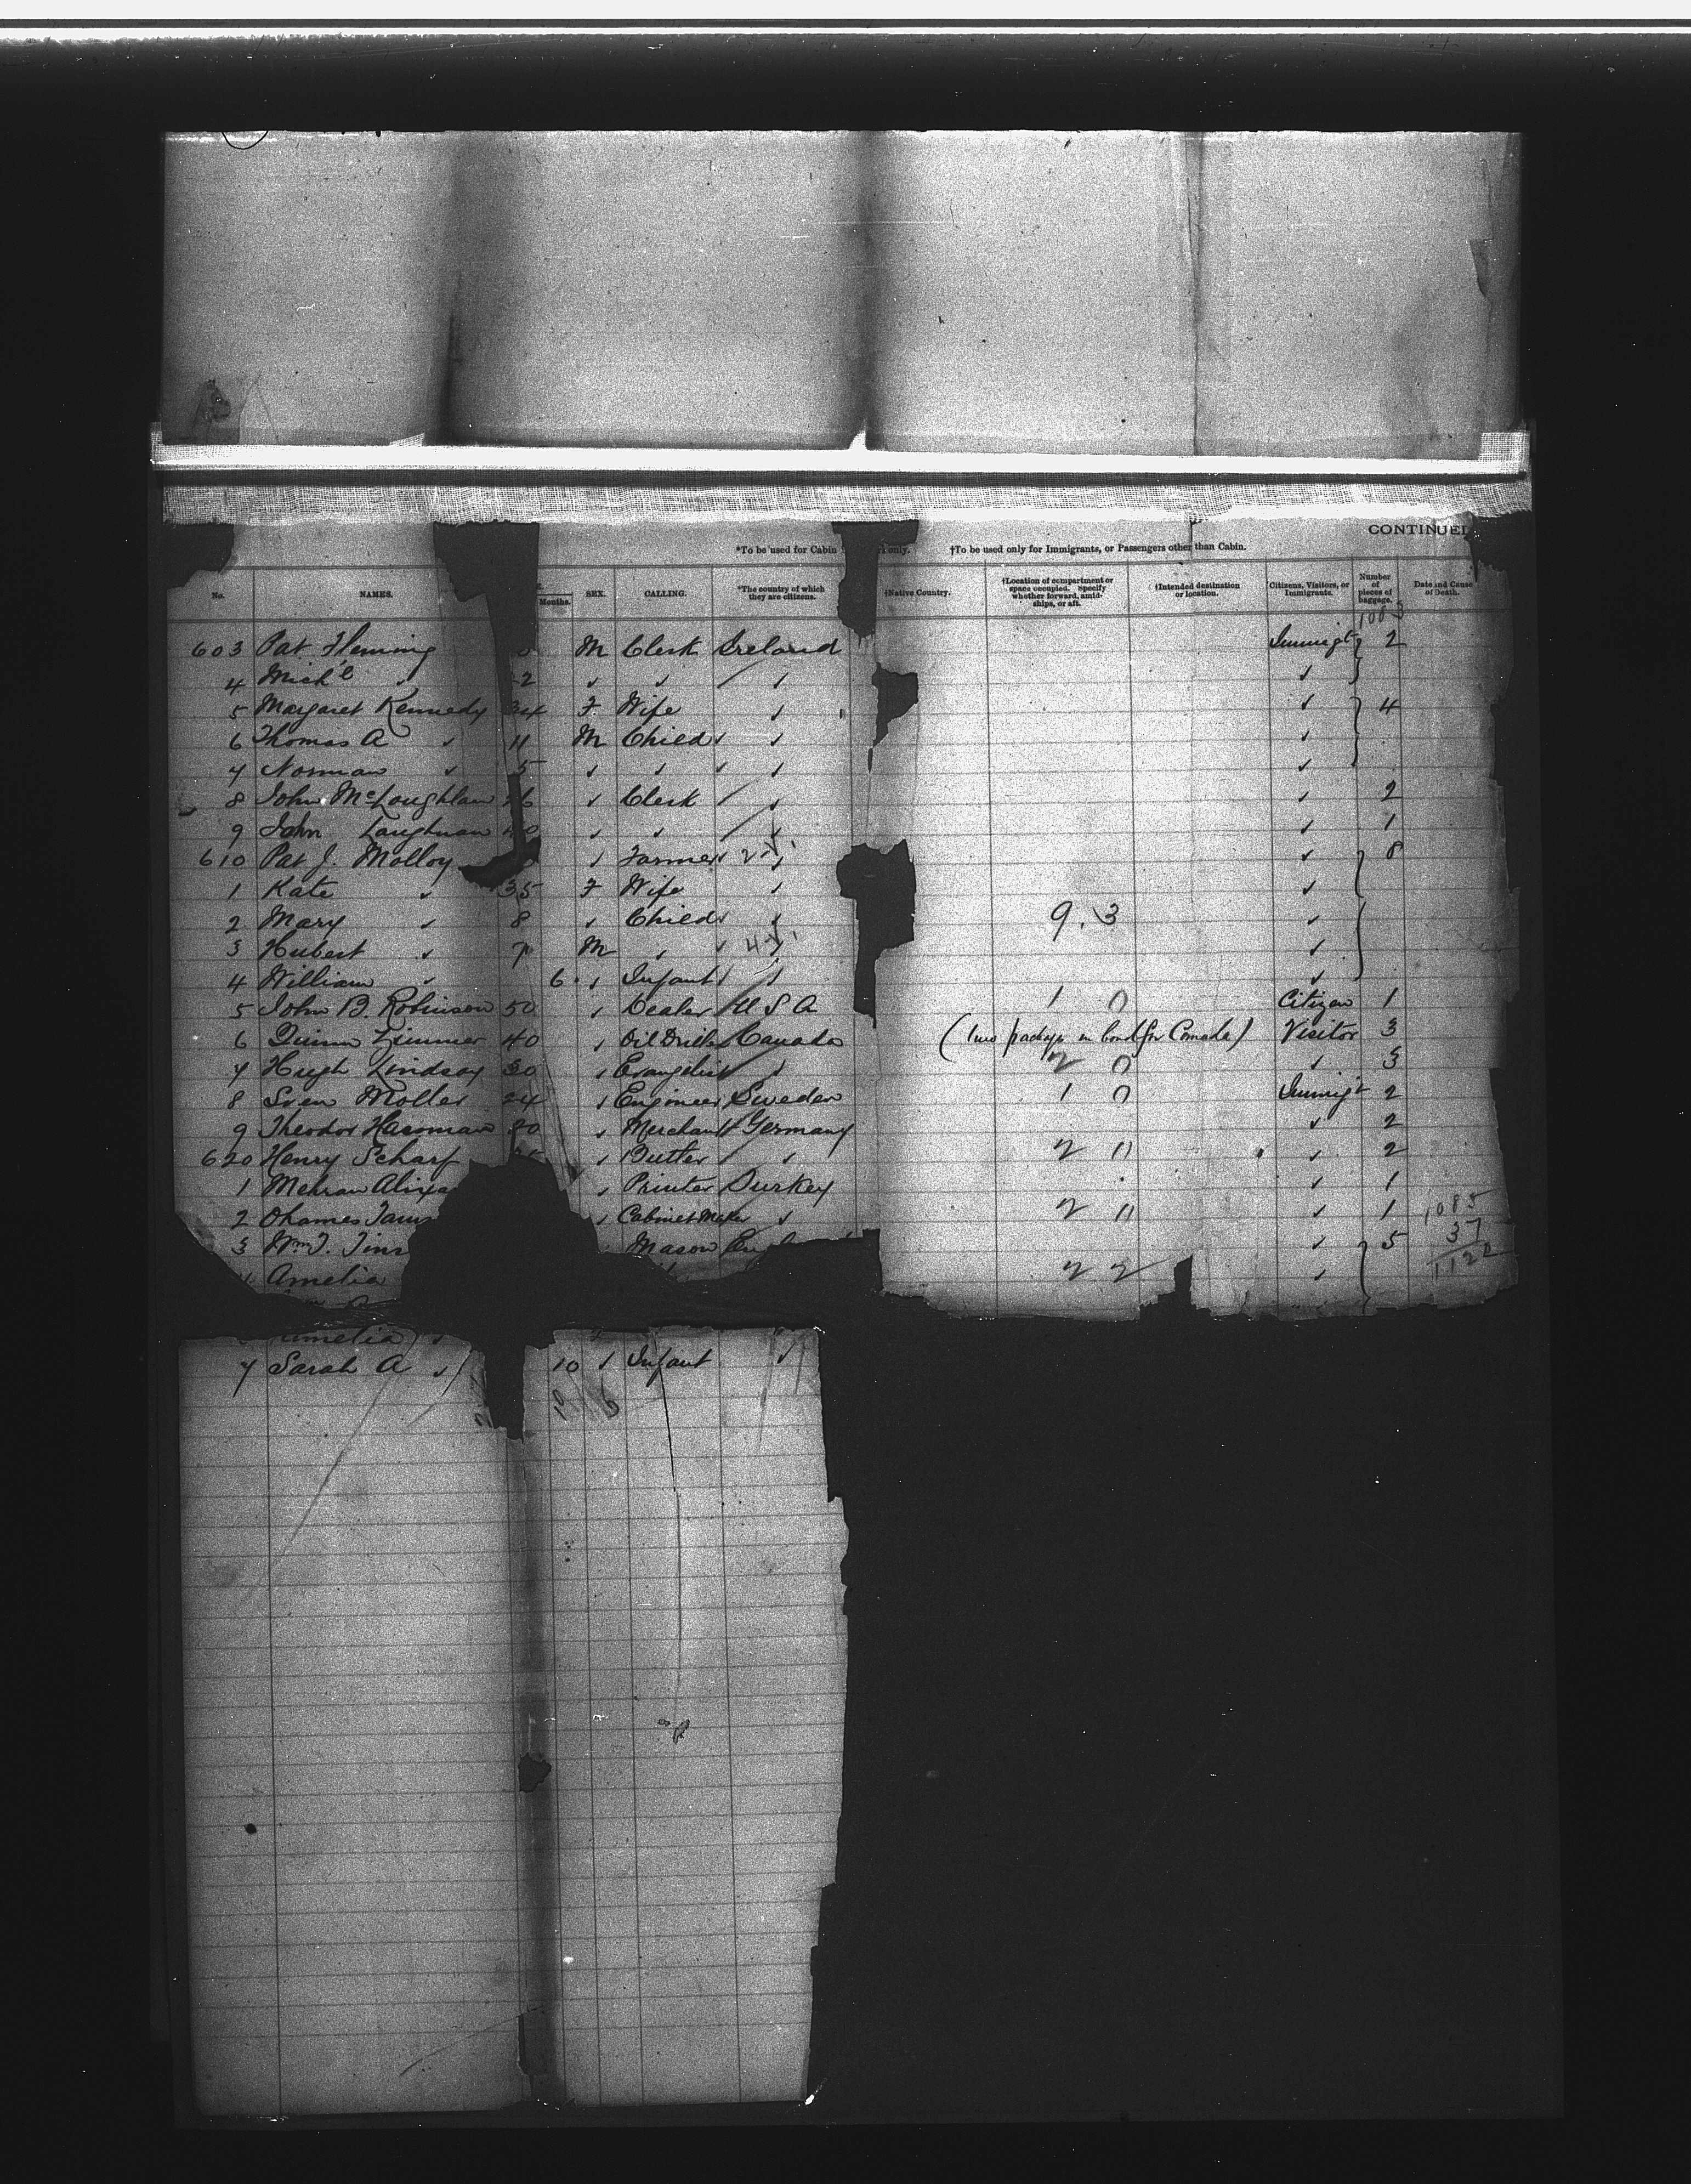 CONTINUED
*To be used for Cabin only. †To be used only for Immigrants, or Passengers other than Cabin.
No. NAMES. Months. SEX. CALLING. *The country of which they are citizens. †Native Country. †Location of compartment or space occupied. Specify whether forward, amidships, or aft. †Intended destination or location. Citizens, Visitors, or Immigrants. Number of pieces of baggage. Date and Cause of Death.
603 Pat Fleming M Clerk Ireland Immigt 2
4 Mich'l 2 ✓ ✓ ✓ ✓
5 Margaret Kennedy 34 F Wife ✓ ✓ 4
6 Thomas A ✓ 11 M Child ✓ ✓
7 Norman ✓ 5 ✓ ✓ ✓ ✓
8 John McLoughlan 6 ✓ Clerk ✓ ✓ 2
9 John Laughnan 0 ✓ ✓ ✓ ✓ 1
610 Pat J. Molloy ✓ Farmer ✓ ✓ 8
1 Kate ✓ 35 F Wife ✓ ✓
2 Mary ✓ 8 ✓ Child ✓ 9.3 ✓
3 Hubert ✓ 7 M ✓ ✓ ✓
4 William ✓ 6 ✓ Infant ✓ ✓
5 John B. Robinson 50 ✓ Dealer U S A 1 0 Citizen 1
6 40 ✓ Oil Driller Canada (two packages in bond for Canada) Visitor 3
7 Hugh Lindsay 30 ✓ Evangelist ✓ 2 0 ✓ 3
8 Sven Moller 24 ✓ Engineer Sweden 1 0 Immigt 2
9 Theodor ✓ Merchant Germany ✓ 2
620 Henry Scharf ✓ Butler ✓ 2 11 ✓ 2
1 Mehran ✓ Printer Turkey ✓ 1
2 Ohannes ✓ Cabinet Maker ✓ 2 11 ✓ 1 1085
3 Wm J. Mason ✓ 5 37
Amelia 2 2 ✓ 1122
Amelia ✓
7 Sarah A ✓ 10 ✓ Infant ✓